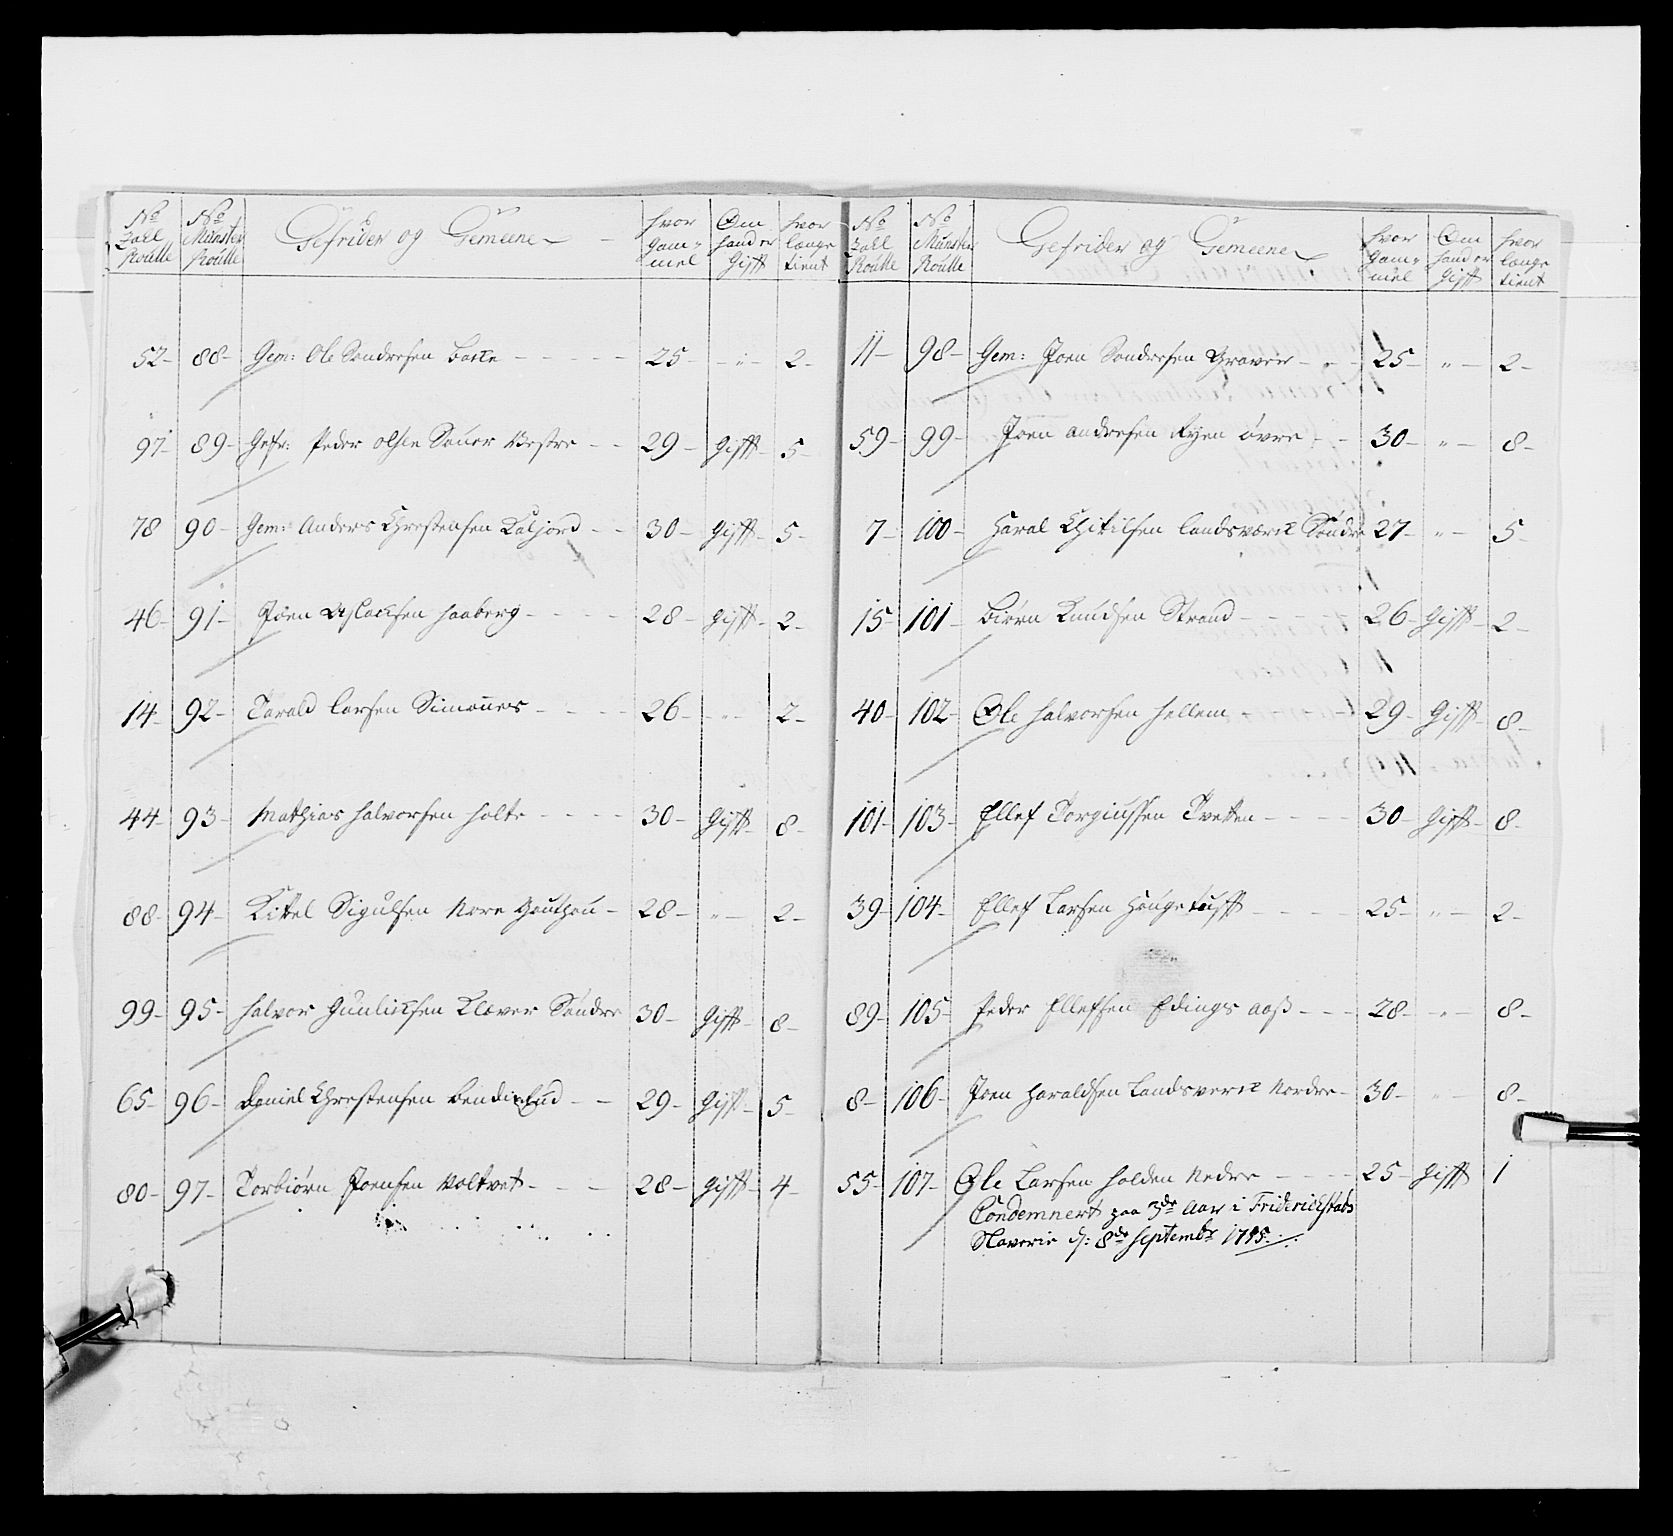 No Zall Roulle | No Munster Roulle | Gefrider og Gemeene | hvor Gammel | Om hand er Gifft | hvor længe tient
52 - 88 - Gem: Ole Sondresen Barte - 25 - " - 2 -
97 - 89 - Gefr: Peder Olsen Sauer Vestre - 29 - Gifft - 5 -
78 90 - Gem: Anders Chrestensen Kaljord - 30 - Gifft - 5 -
46 - 91 - Joen Aslacksen Haaberg - 28 - Gifft - 2 -
14 - 92 - Tarald Larsen Simones - 26 - " - 2 -
44 - 93 - Mathias Halvorsen Holte - 30 - Gifft - 8 -
88 - 94 - Kittel Sigulsen Nore - 28 - " - 2 -
99 - 95 - Halvor Gunlicksen Klæver Söndre 30 - Gifft - 8 -
65 - 96 - Daniel Chrestensen - 29 - Gifft - 5 -
80 - 97 - Torbiörn Joensen Voltvet - 28 - Gifft - 4 -
No Zall Roulle | No Munster Roulle | Gefrider og Gemeene | hvor Gammel | Om hand er Gifft | hvor længe tient
11 - 98 - Gem: Joen Sondresen Graver - 25 - " - 2 -
59 - 99 - Joen Andresen Ryen övre - 30 - " - 8 -
7 - 100 - Haral Chitilsen Landsværk Söndre 27 - " - 5 -
15 - 101 - Biörn Knudsen Strand - 26 - Gifft - 2 -
40 - 102 - Ole Halvorsen Hellem - 29 - Gifft - 8 -
101 - 103 - Ellef Torgiussen Tvetten - 30 - Gifft - 8 -
39 - 104 - Ellef Larsen Haugetufft - 25 - " - 2 -
89 - 105 - Peder Ellefsen Edings aaß - 28 - " - 8 -
8 - 106 - Joen Haraldsen Landsverk Nordre - 30 - " - 8 -
55 - 107 - Ole Larsen Holden Nedre - 25 - Gifft 1
Condemnert paa 3de Aar i Friderichstads
Slaverie d: 8de Septembr 1795.